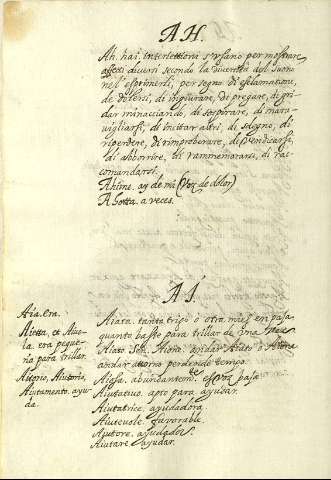 AH.
Ah. hai. interiettioni s'usano per mostrare
affetti diuersi secondo la diuersità del suono
nell'esprimerli, per segno di esclamatione,
de dolersi, di ingiuriare, di pregare, di gri
dar minacciando, di sospirare, di mara-
uigliarsi, di incitar altri, di sdegno, di
riprendere, di rimprouerare, di vendicarsi,
di abborrire, di rammemorarsi, di rac
comandarsi.
Ahime. ay de mi (Voz de dolor)
A hotta. a veces.
AI.
Aia. era.
Aietta, et Aiuo-
la. era peque-
ña para trillar.
Aitorio, Aiutorio,
Aiutamento. ayu
da.
Aiata. tanta trigo ò otra mies en paja
quanto basto para trillar de una vez
Aiato. andar Aiato ò
andar attorno perdendo tempo.
abundantem.
Aiutatiuo. apto para ayudar.
Aiutatrice. ayudadora.
Aiuteuole. fauorable.
Aiutore. ayudador.
Aiutare. ayudar.